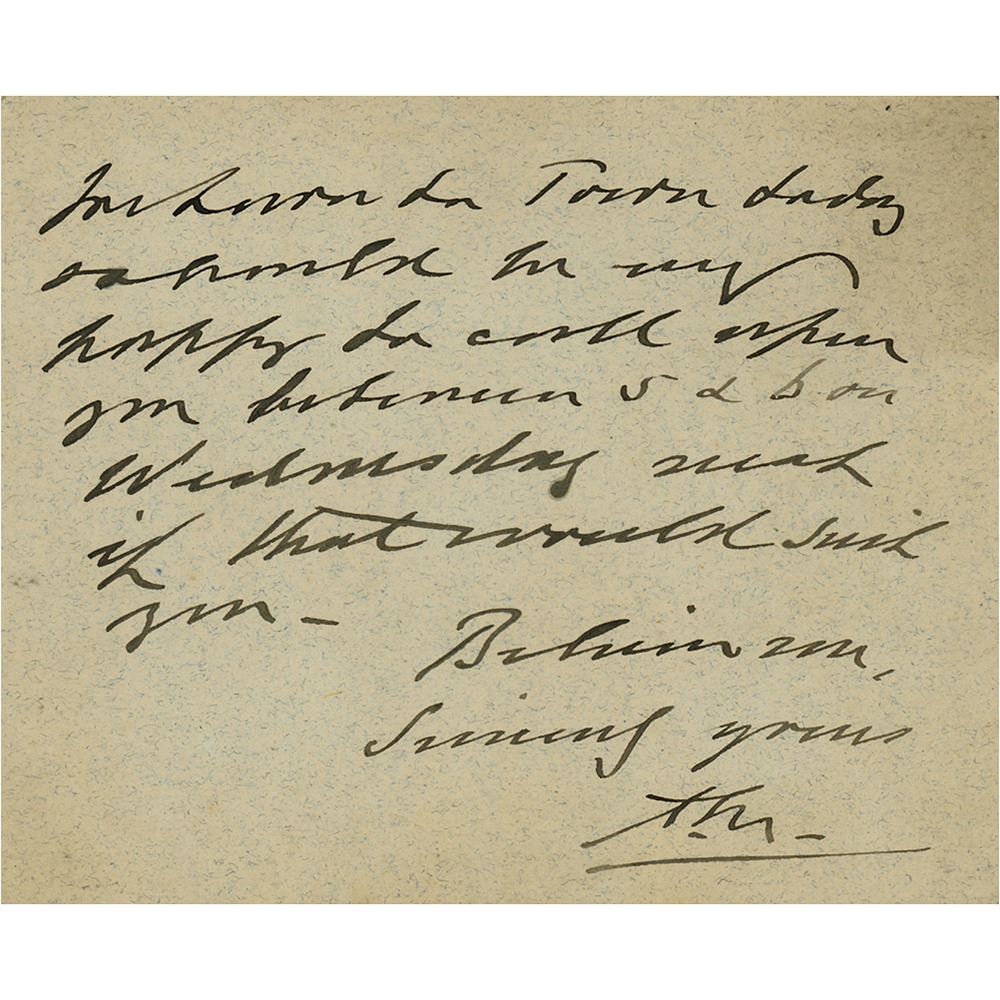 return to Town today
& should be very
happy to call upon
you between 5 & 6 on
Wednesday next
if that would suit
you –
Believe me,
Sincerely yours